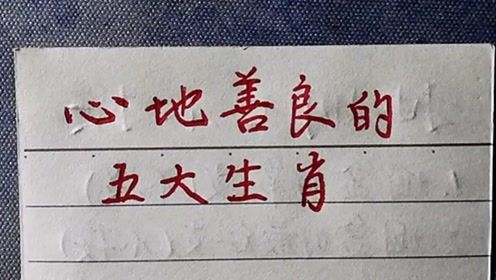 心地善良的
五大生肖